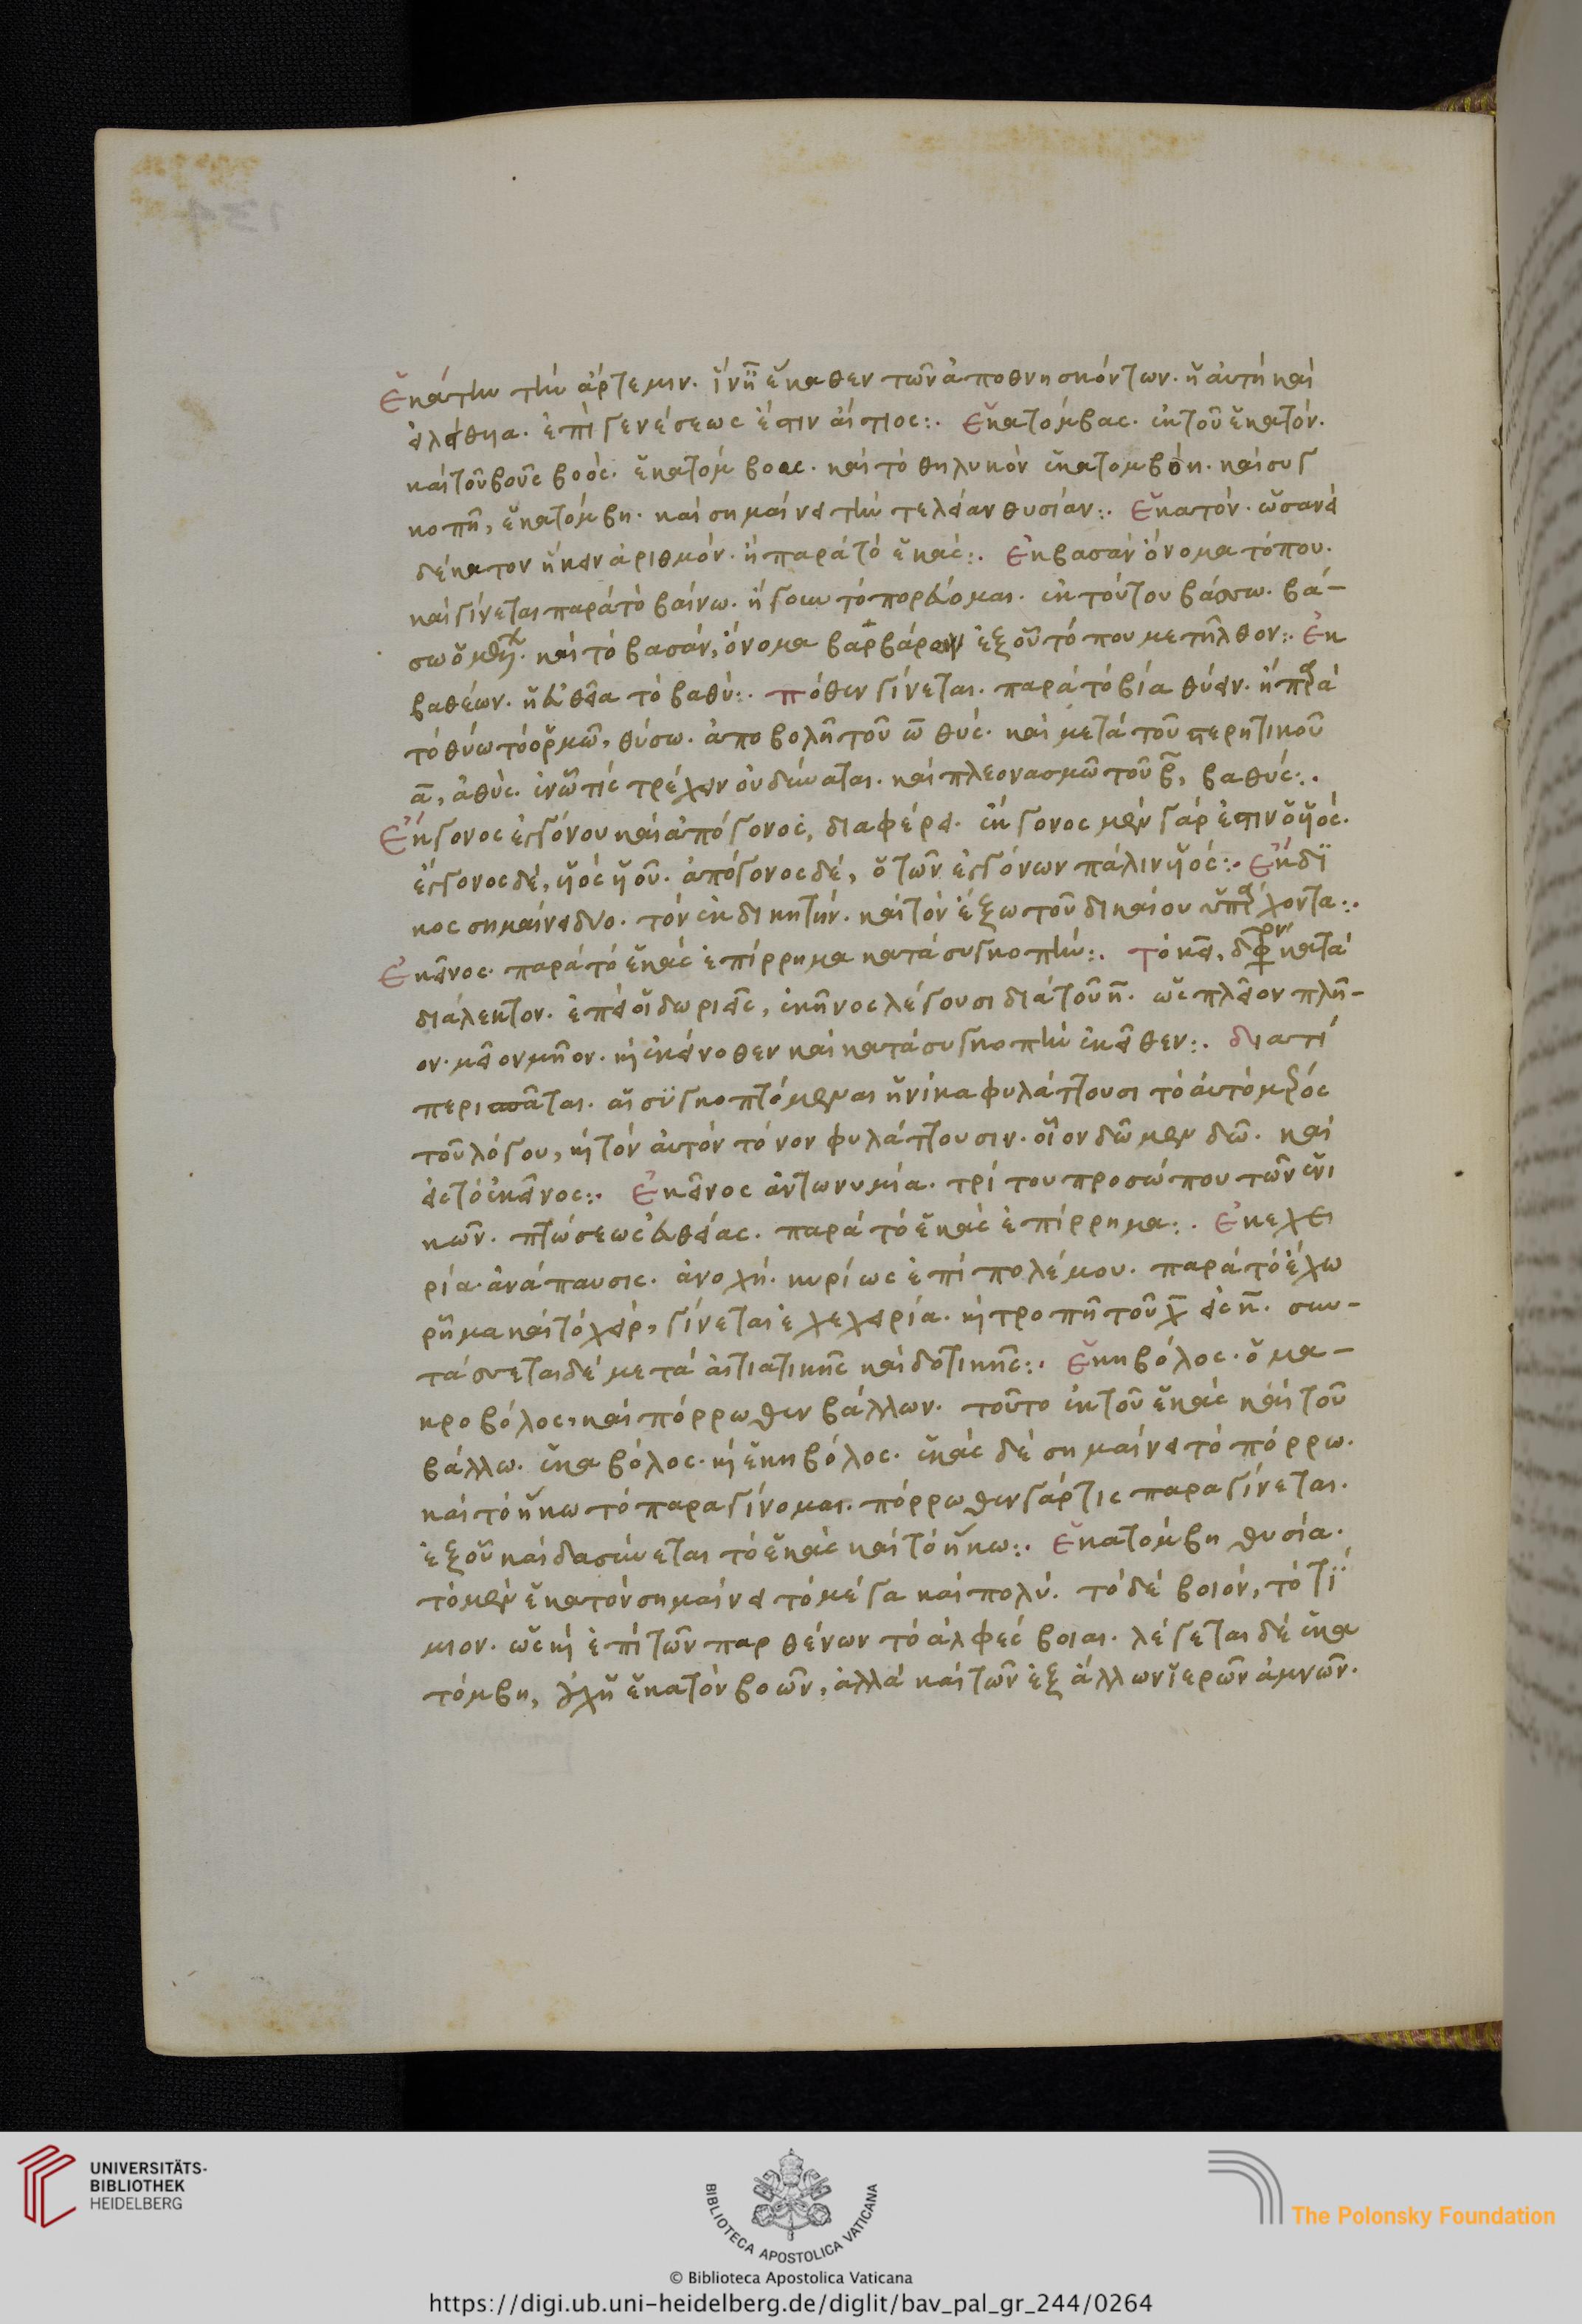 Ἑκάτην τὴν ἄρτεμιν. ἵν ᾖ ἕκαθεν τῶν ἀποθνησκόντων. ἡ αὐτὴ καὶ
εἰλείθηα. ἐπὶ γενέσεως ἐστιν αἴτιος:. Ἑκατόμβας. ἐκ τοῦ ἑκατόν.
καὶ τοῦ βοῦς βοός. ἑκατόμβοας. καὶ τὸ θηλυκὸν ἑκατομβόη. καὶ συγ
κοπῆ, ἑκατόμβη. καὶ σημαίνει τὴν τελείαν θυσίαν:. Ἑκατόν. ὡσανεὶ
δέκατον ἥκειν ἀριθμόν. ἢ παρὰ τὸ ἑκάς:. Ἐκβασάν ὄνομα τόπου.
καὶ γίνεται παρὰ τὸ βαίνω. ἤγουν τὸ πορεύομαι. ἐκ τούτου βάσσω. βά-
σω ὁ μέλλων. καὶ τὸ βασάν, ὄνομα βαρβάρων ἐξ οὗ τόπου μετῆλθον:. Ἐκ
βαθέων. ἡ εὐθεῖα τὸ βαθύ:. πόθεν γίνεται. παρὰ τὸ βία θύειν. ἢ παρὰ
τὸ θύω τὸ ὁρμῶ, θύσω. ἀποβολῆ τοῦ ω θύς. καὶ μετὰ τοῦ στερητικοῦ
α, ἀθύς. ἐν ᾧ τίς τρέχειν οὐ δύναται. καὶ πλεονασμῶ τοῦ β, βαθύς:.
Ἔκγονος ἐγγόνου καὶ ἀπόγονος, διαφέρει. ἔκγονος μὲν γάρ ἐστιν ὁ ὑϊός.
ἔγγονος δέ, ὑός ὑοῦ. ἀπόγονος δέ, ὁ τῶν ἐγγόνων πάλιν ὑός:. Ἔκδι
κος σημαίνει δύο. τὸν ἐκδικητήν. καὶ τὸν ἔξω τοῦ δικαίου ὑπάρχοντα:.
Ἐκεῖνος. παρὰ τὸ ἑκάς ἐπίρρημα κατὰ συγκοπήν:. τὸ κει, δίφθογγον κατὰ
διάλεκτον. ἐπεὶ οἱ δωριεῖς, ἐκῆνος λέγουσι διὰ τοῦ η. ὡς πλεῖον πλῆ-
ον. μεῖον μῆον. καὶ ἐκείνοθεν καὶ κατὰ συγκοπὴν ἐκεῖθεν:. διατί
περισπᾶται. αἱ συγκοπτόμεναι ἡνίκα φυλάττουσι τὸ αὐτὸ μέρος
τοῦ λόγου, καὶ τὸν αὐτὸν τόνον φυλάττουσιν. οἷον δῶμεν δῶ. καὶ
εἰς τὸ ἐκεῖνος:. Ἐκεῖνος ἀντωνυμία. τρίτου προσώπου τῶν ἑνι
κῶν. πτώσεως εὐθείας. παρὰ τὸ ἑκάς ἐπίρρημα:. Ἐκεχει
ρία. ἀνάπαυσις. ἀνοχή. κυρίως ἐπὶ πολέμου. παρὰ τὸ ἔχω
ρῆμα καὶ τὸ χείρ, γίνεται ἐχεχειρία. καὶ τροπῆ τοῦ χ εἰς κ. συν-
τάσσεται δὲ μετὰ αἰτιατικῆς καὶ δοτικῆς:. Ἑκηβόλος. ὁ μα-
κροβόλος, καὶ πόρρωθεν βάλλων. τοῦτο ἐκ τοῦ ἑκάς καὶ τοῦ
βάλλω. ἑκαβόλος. καὶ ἑκηβόλος. ἑκάς δὲ σημαίνει τὸ πόρρω.
καὶ τὸ ἥκω τὸ παραγίνομαι. πόρρωθεν γάρ τις παραγίνεται.
ἐξ οὗ καὶ δασύνεται τὸ ἑκάς καὶ τὸ ἥκω:. Ἑκατόμβη θυσία.
τὸ μὲν ἑκατὸν σημαίνει τὸ μέγα καὶ πολύ. τὸ δὲ βοιόν, τὸ τί
μιον. ὡς καὶ ἐπὶ τῶν παρθένων τὸ ἀλφεσίβοιαι. λέγεται δὲ ἑκα
τόμβη, οὐχὶ ἑκατὸν βοῶν, ἀλλὰ καὶ τῶν ἐξ ἄλλων ἱερῶν ἀμνῶν.
UNIVERSITÄTS-
BIBLIOTHEK
HEIDELBERG
BIBLIOTECA APOSTOLICA VATICANA
The Polonsky Foundation
© Biblioteca Apostolica Vaticana
https://digi.ub.uni-heidelberg.de/diglit/bav_pal_gr_244/0264